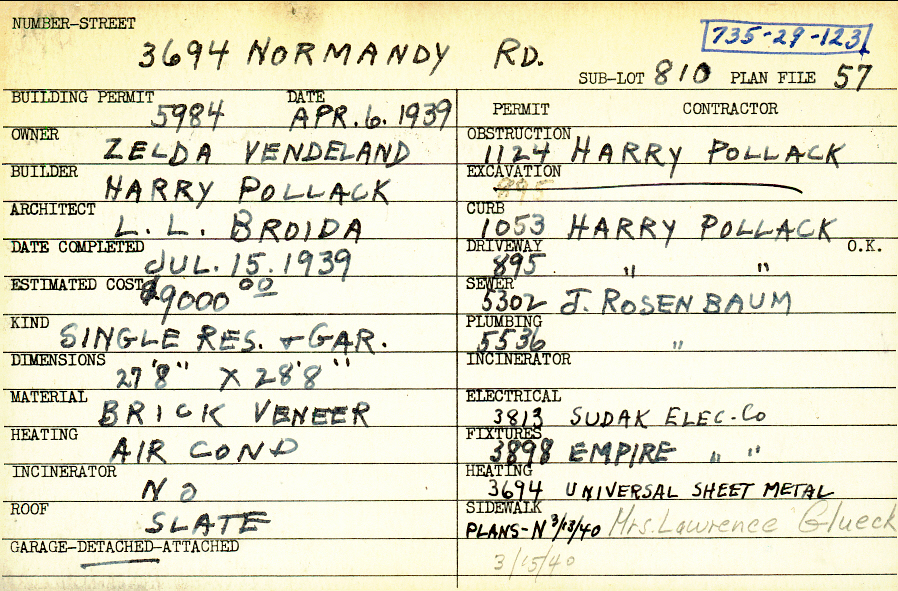 NUMBER-STREET
3694 NORMANDY RD.
735-29-123
SUB-LOT 810 PLAN FILE 57
BUILDING PERMIT 5984 DATE APR. 6. 1939
OWNER ZELDA VENDELAND
BUILDER HARRY POLLACK
ARCHITECT L. L. BROIDA
DATE COMPLETED JUL. 15. 1939
ESTIMATED COST $9000 00
KIND SINGLE RES. & GAR.
DIMENSIONS 27'8" X 28'8"
MATERIAL BRICK VENEER
HEATING AIR COND
INCINERATOR NO
ROOF SLATE
GARAGE-DETACHED-ATTACHED
PERMIT CONTRACTOR
OBSTRUCTION 1124 HARRY POLLACK
EXCAVATION 895
CURB 1053 HARRY POLLACK
DRIVEWAY 895 " " O.K.
SEWER 5302 J. ROSENBAUM
PLUMBING 5536 "
INCINERATOR
ELECTRICAL 3813 SUDAK ELEC-CO
FIXTURES 3898 EMPIRE " "
HEATING 3694 UNIVERSAL SHEET METAL
SIDEWALK
PLANS-N 3/13/40 Mrs. Lawrence Glueck
3/15/40